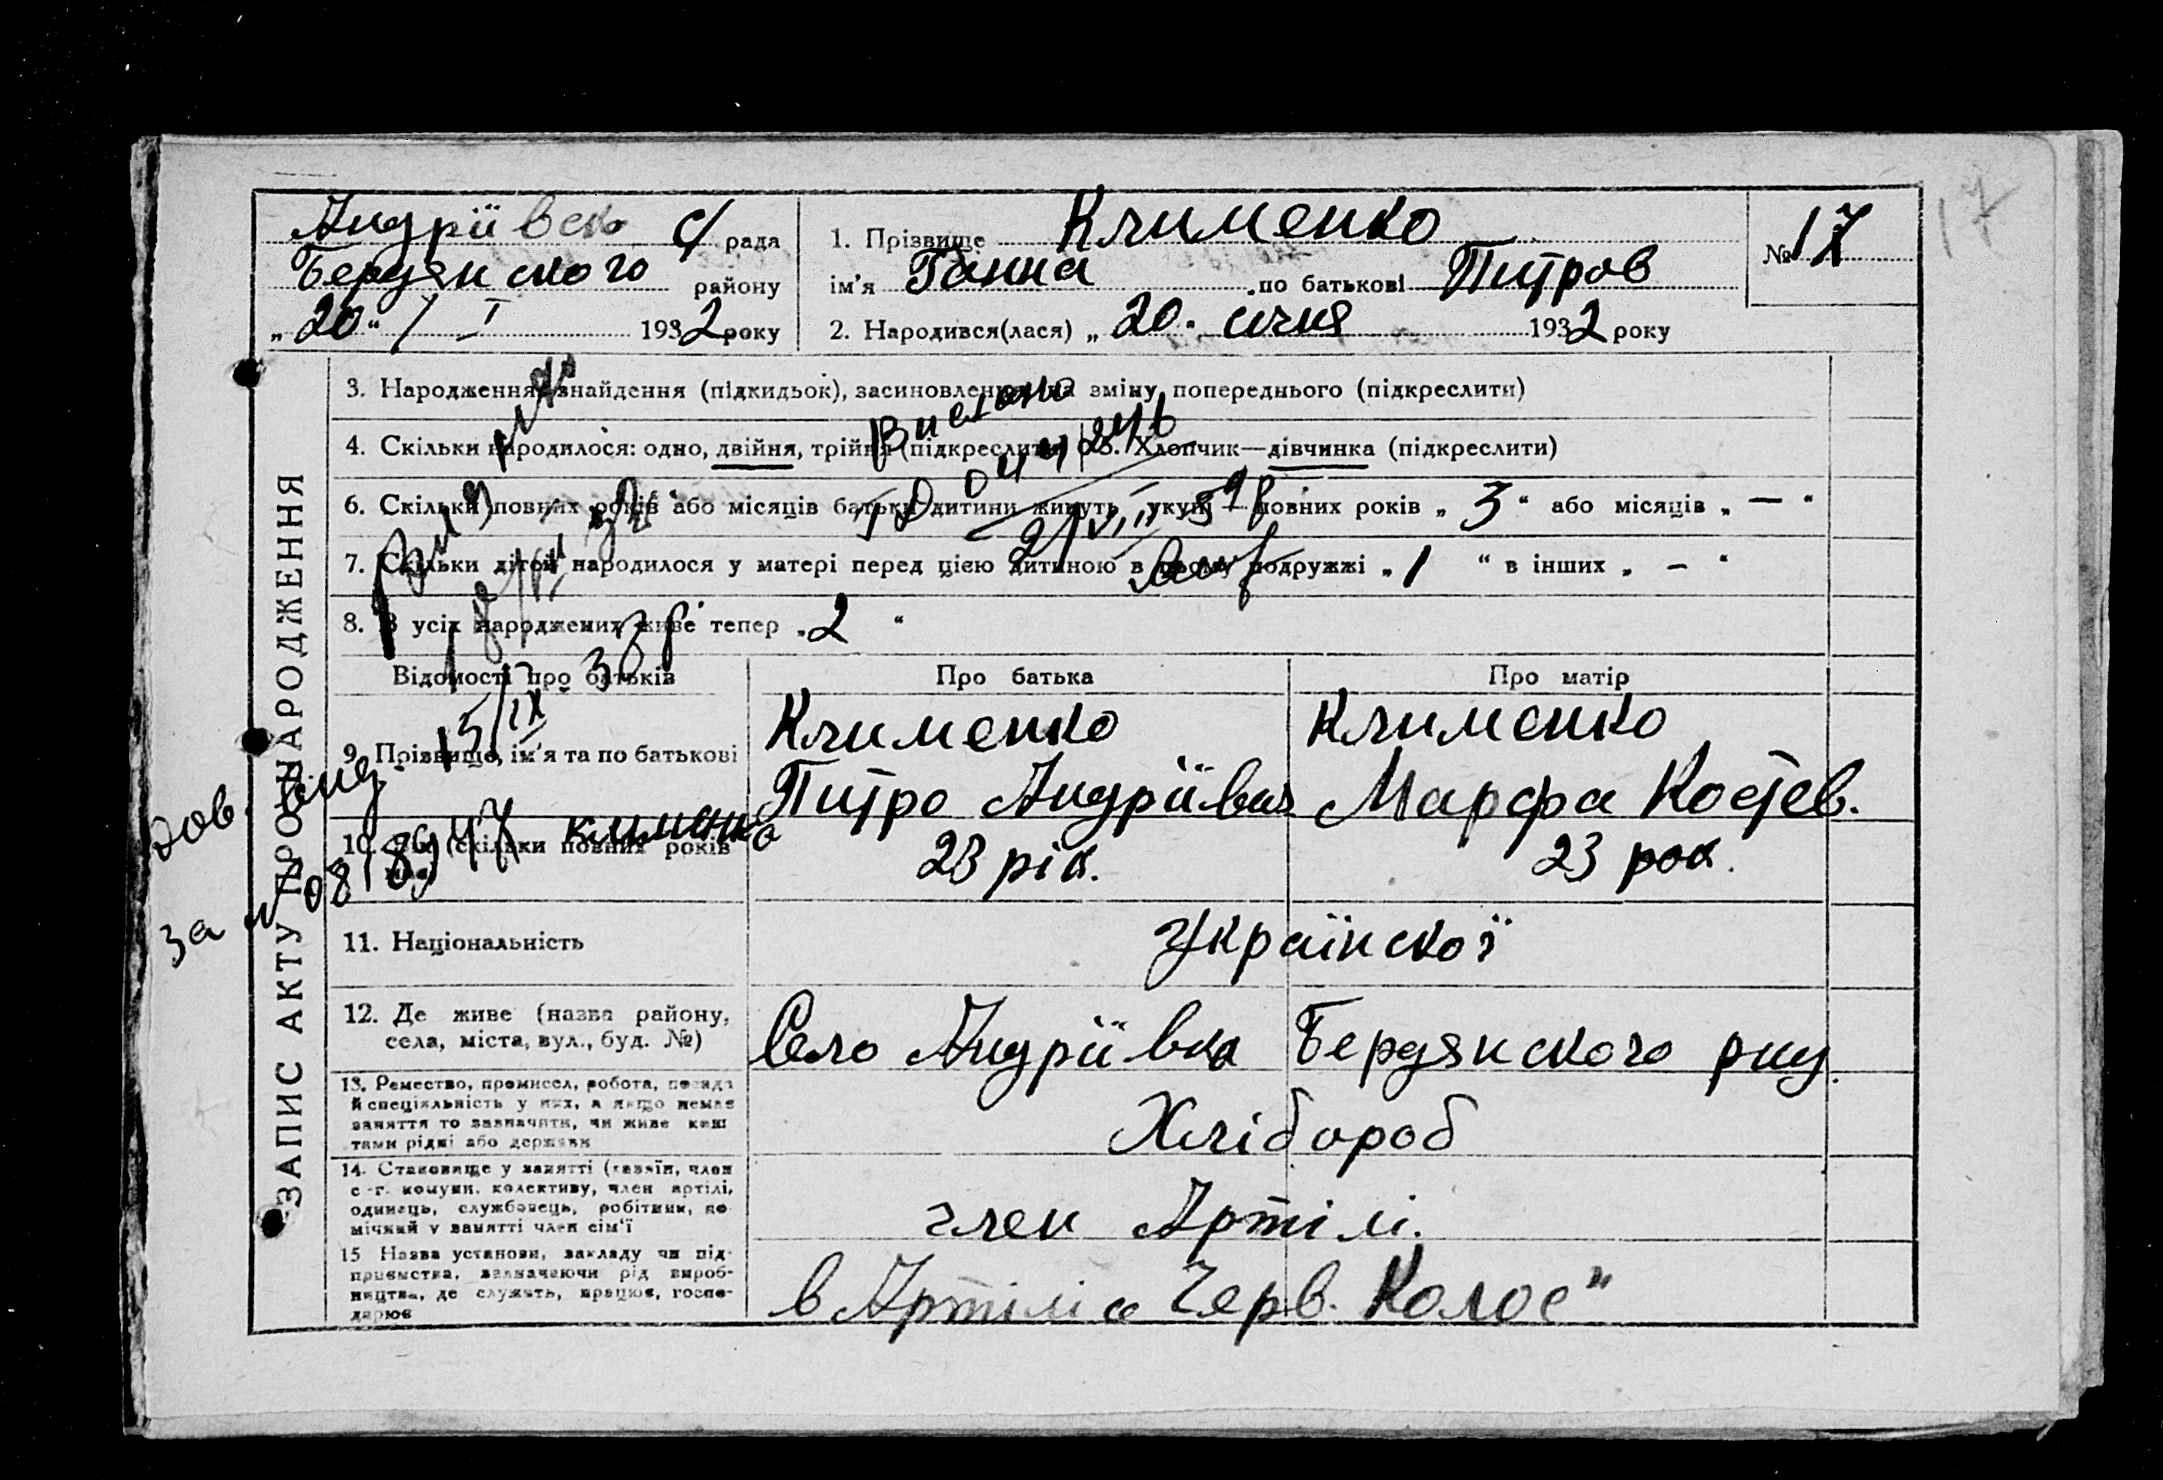 Андріївсько с/ рада
Бердянского району
„20“ / I 1932 року
1. Прізвище Клименко
ім'я Ганна по батькові Питров
2. Народився(лася) „ 20. січня 1932 року
№ 17
17
3. Народження, знайдення (підкидьок), засиновлення на зміну попереднього (підкреслити)
4. Скільки народилося: одно, двійня, трійня (підкреслити) 5. Хлопчик—дівчинка (підкреслити)
6. Скільки повних років або місяців батьки дитини живуть укупі — повних років „ 3 “ або місяців „ — “
7. Скільки дітей народилося у матері перед цією дитиною в цьому подружжі „ 1 “ в інших „ — “
8. З усіх народжених живе тепер „ 2 “
Відомості про батьків
Про батька
Про матір
9. Прізвище, ім'я та по батькові
Клименко
Питро Андріївич
Клименко
Марфа Костев.
10. скільки повних років
23 рік.
23 рок.
11. Національність
Українскої
12. Де живе (назва району,
села, міста, вул., буд. №)
Село Андріївка Бердянского рну.
13. Ремество, промисел, робота, посада
й спеціяльність у них, а якщо немає
заняття то зазначити, чи живе кош
тами рідні або держави
Хлібороб
14. Становище у занятті (хазяїн, член
с.-г. комуни, колективу, член артілі,
одинець, службовець, робітник, по
мічний у занятті член сім'ї
член Артілі.
15 Назва установи, закладу чи під-
приємства, зазначаючи рід вироб-
ництва, де служить, працює, госпо-
дарює
в Артілі Черв. Колос"
ЗАПИС АКТУ ПРО НАРОДЖЕННЯ
15/IX
дов.
за № 08189
клименко